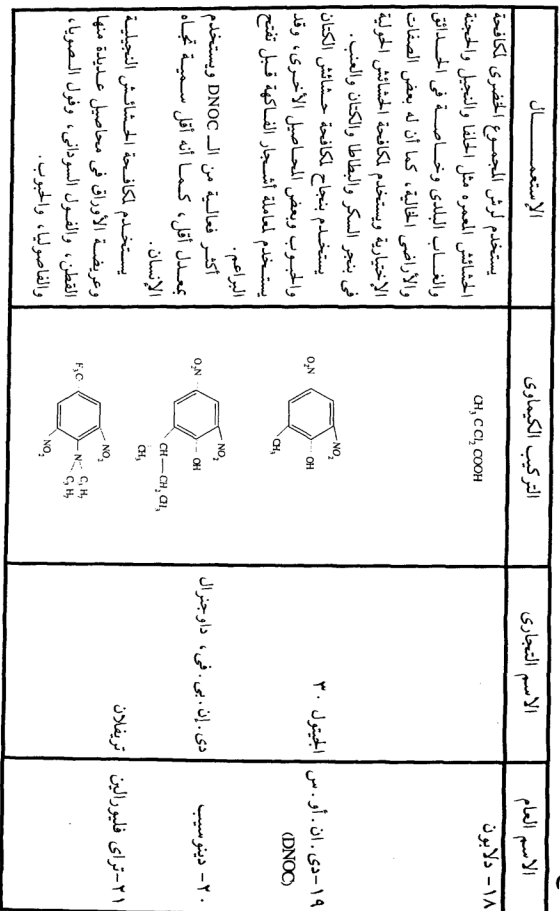 الاسم العام
الاسم التجارى
التركيب الكيماوى
الإستعمـــــــــال
١٨- دلابون
CH₃ C Cl₂ COOH
يستخدم لرش المجموع الخضرى لمكافحة
الحشائش المعمره مثل الحلفا والنجيل والحجنة
والغــاب البلدى وخـاصـــة فى الحــدائق
والأراضى الخالية، كما أن له بعض الصفات
الإختيارية ويستخدم لمكافحة الحشائش الحولية
فى بنجر السكر والبطاطا والكتان والعنب.
١٩-دى . ان . أو . س
(DNOC)
الجيتول ٣٠
O₂N
NO₂
OH
CH₃
يستخـدم بنجاح لمكافحة حـشائش الكتان
والحبـوب وبعض المحـاصيل الأخــرى، وقد
يستـخدم لمعاملة أشـجار الفـاكهة قـبل تفتح
البراعم.
٢٠- دينوسيب
دى . إن . بى . فى، داوجنرال
O₂N
NO₂
OH
CH — CH₂ CH₃
CH₃
أكثـر فعاليـة من الـ DNOC ويستخدم
بمعـدل أقل، كـمـا أنه أقل سـمـيـة تجـاه
الإنسان.
٢١-تراى فليورالين
تريفلان
F₃C
NO₂
N
C₃ H₇
C₃ H₇
NO₂
يستخـدم لمكافـحة الحـشـائش النجيلـية
وعريضـة الأوراق فى محاصيل عـديدة منها
القطن، والفـول السـودانى، وفول الـصـويا،
والفاصوليا، والحبوب.